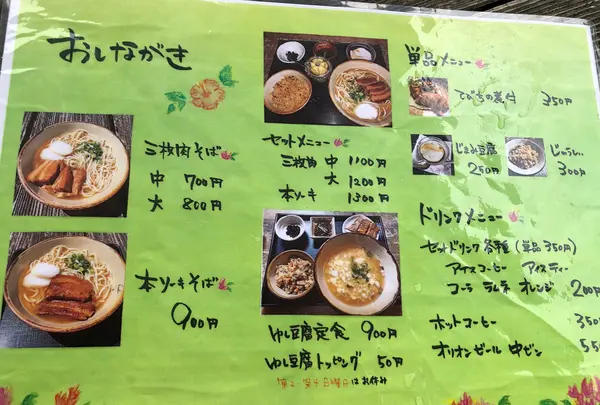 おしながき
三枚肉そば
中 700円
大 800円
本ソーキそば
900円
セットメニュー
三枚肉 中 1100円
大 1200円
本ソーキ 1300円
ゆし豆腐定食 900円
ゆし豆腐トッピング 50円
日曜日はお休み
単品メニュー
てびちの煮付 350円
じーまみ豆腐
250円
じゅーしぃ
300円
ドリンクメニュー
セットドリンク各種 (単品350円)
アイスコーヒー アイスティー
コーラ ラムネ オレンジ 200円
ホットコーヒー 350
オリオンビール 中ビン